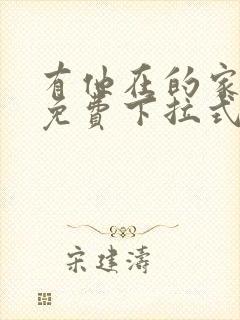 有他在的家
免费下拉式
宋建涛